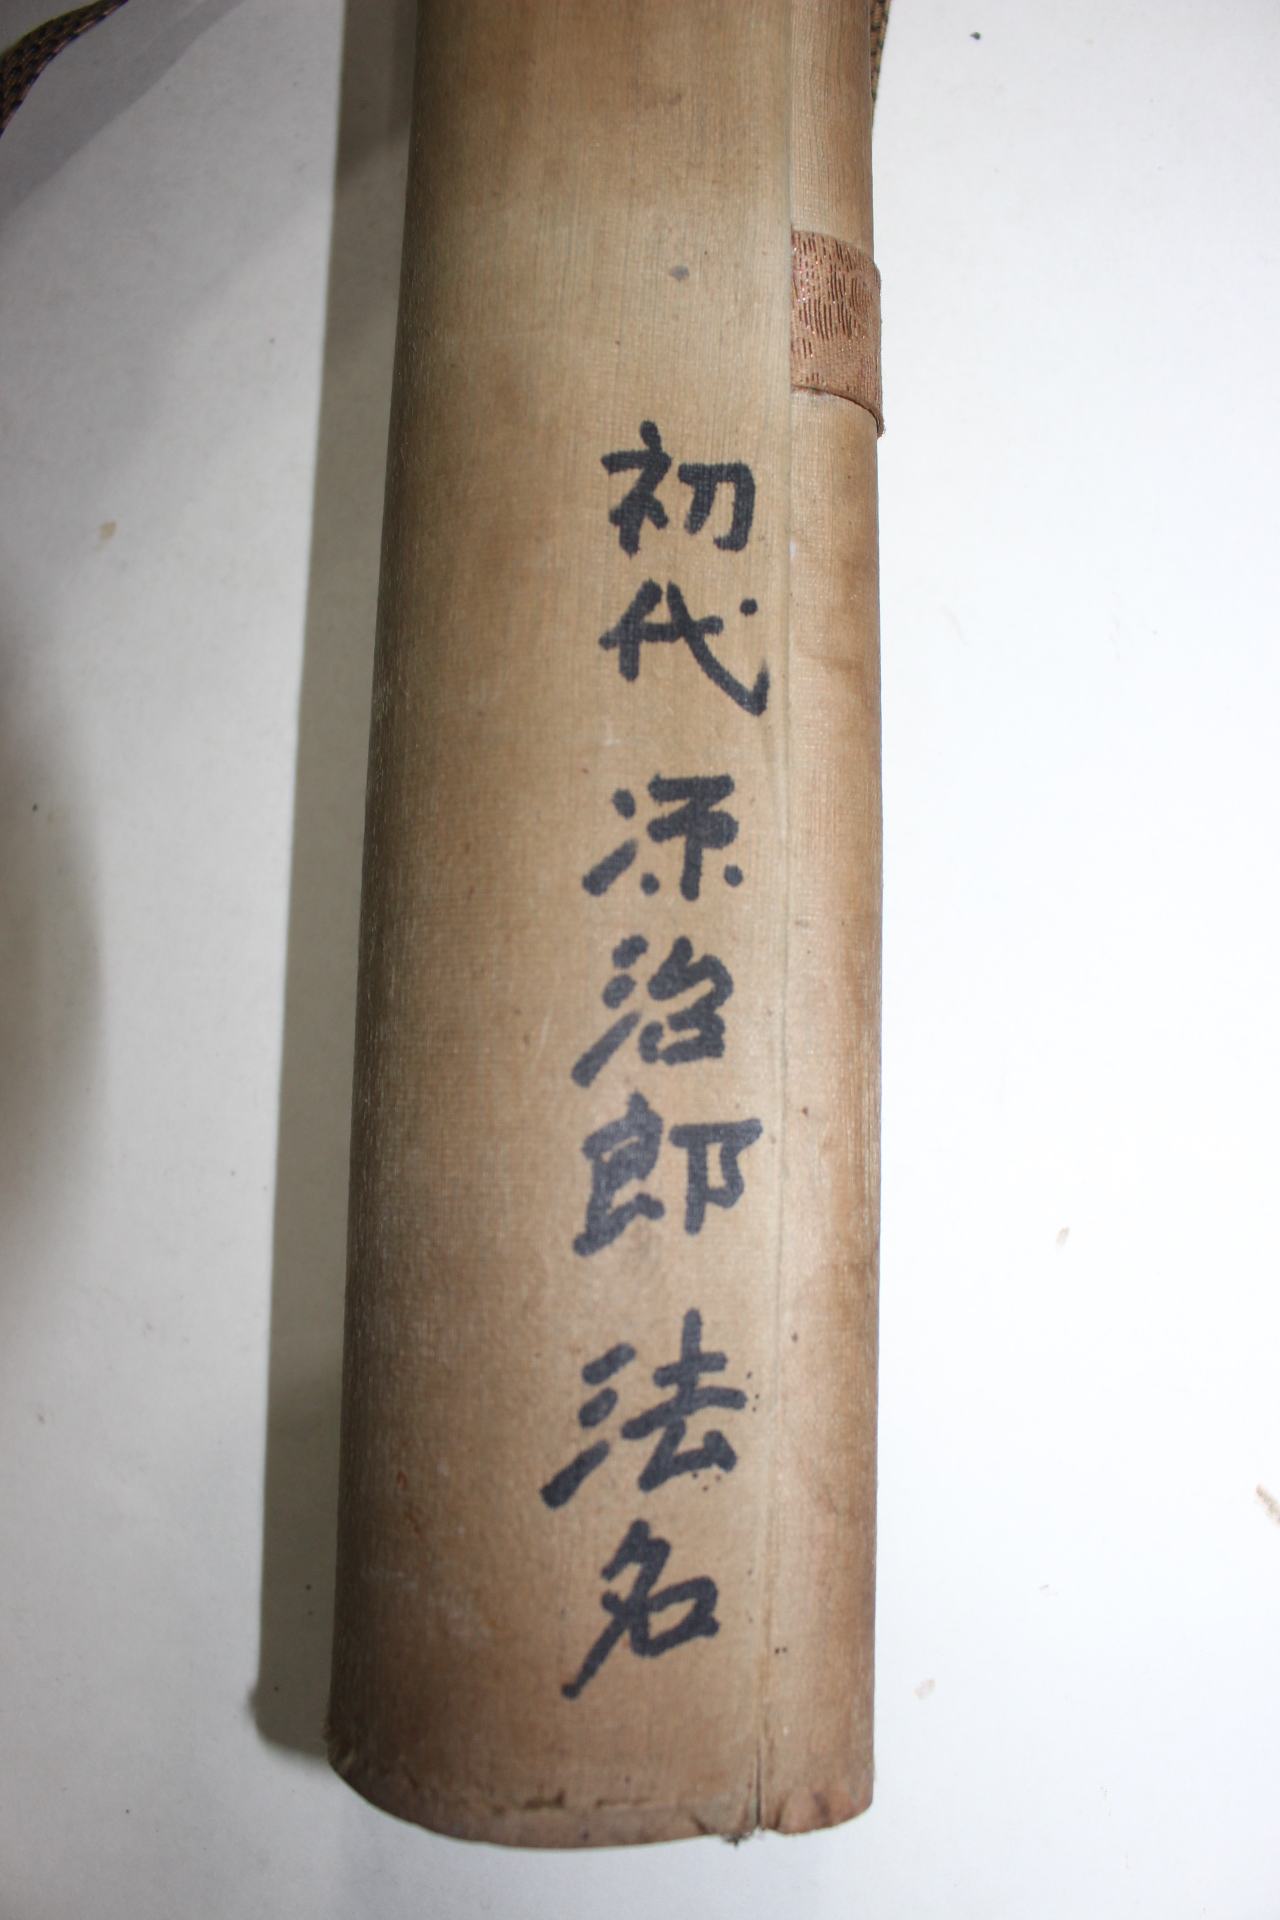 初代 源治郎 法名